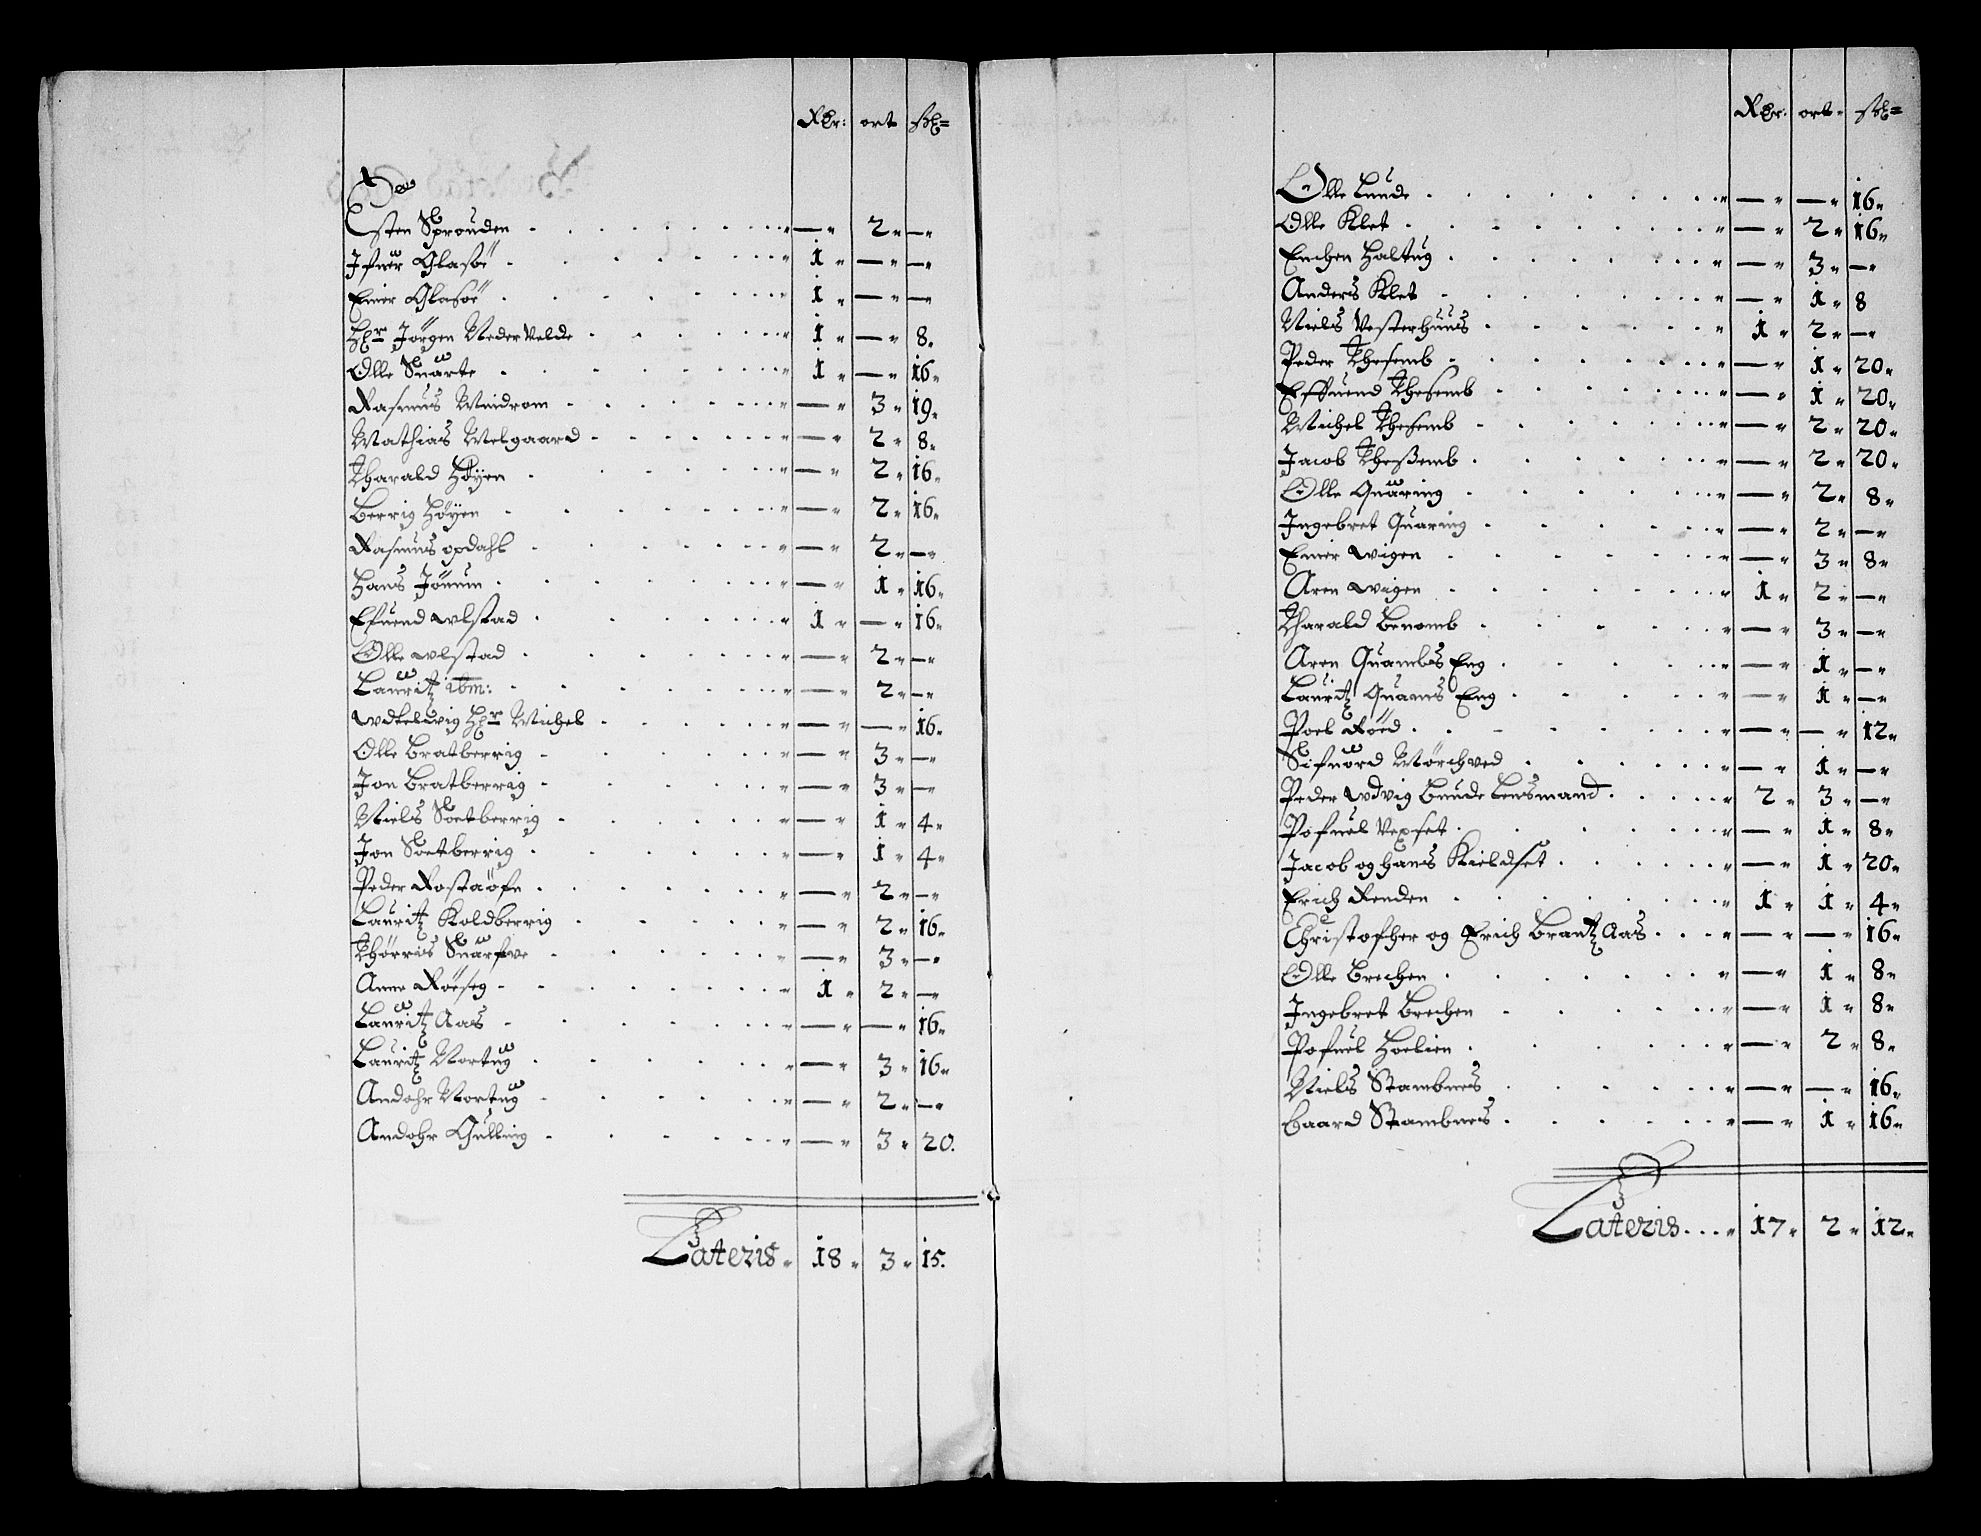 Rdr: ort sk=
Esten Sprouden . . . . . . — 2 —
Ifuer Glasöe . . . . . . 1 — —
Einer Glasöe . . . . . . 1 — —
Hr Jörgen Nedervelde . . . . . 1 — 8.
Olle Snarte . . . . . . 1 — 16
Rasmus Meidrom . . . . . — 3 19
Mathias Melgaard . . . . . — 2 8
Tharald Høyen . . . . . — 2 16
Berrig Høyen . . . . . — 2 16
Rasmus opdahl . . . . . — 2 —
Hans Jönum . . . . . — 1 16
Efuend Ulstad . . . . . 1 — 16
Olle Ulstad . . . . . — 2 —
Lauritz ibm: . . . . . — 2 —
Udtelvig Hr Michel . . . . — — 16
Olle Bratberrig . . . . . — 3 —
Jon Bratberrig . . . . . — 3 —
Niels Soetberrig . . . . . — 1 4
Jon Soetberrig . . . . . — 1 4
Peder Rostaöfn . . . . . — 2 —
Lauritz Koldberrig . . . . . — 2 16
Thörris Snarfve . . . . . — 3 —
Anne Röeseg . . . . . 1 2 —
Lauritz Aas . . . . . — — 16
Lauritz Nortug . . . . . — 3 16
Andohr Nortug . . . . . — 2 —
Andohr Gulling . . . . . — 3 20.
Lateris 18 3 15.
Rdr: ort sk=
Olle Lunde . . . . . . — — 16
Olle Klet . . . . . . — 2 16
Enchen Haltug . . . . . — 3 —
Anders Klet . . . . . — 1 8
Niels Vesterhuus . . . . . 1 2 —
Peder Thesemb . . . . . — 1 20
Effuend Thesemb . . . . . — 1 20
Michel Thesemb . . . . . — 2 20
Jacob Theßemb . . . . . — 2 20
Olle Quaring . . . . . — 2 8
Ingebret Quaring . . . . . — 2 —
Einer Wigen . . . . . — 3 8
Aren Wigen . . . . . 1 2 —
Tharald Benomb . . . . . — 3 —
Aren Quambs Eng . . . . . — 1 —
Lauritz Quams Eng . . . . . — 1 —
Poel Röed . . . . . — — 12
Sifuord Mörchved . . . . . — 1 —
Peder Udvig Lunde Lensmand . . . . 2 3 —
Pofuel Vexset . . . . . — 1 8
Jacob og Hans Kieldset . . . . . — 1 20
Erich Renden . . . . . 1 1 4
Christofher og Erich Brantz Aas . . . — — 16
Olle Brechen . . . . . — 1 8
Ingebret Brechen . . . . . — 1 8
Pofuel Hoelien . . . . . — 2 8
Niels Stambnes . . . . . — — 16
Baard Stambnes . . . . . — 1 16
Lateris . . . 17 2 12